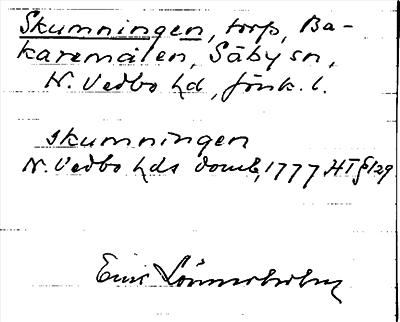 Skumningen, torp, Ba-
karemålen, Säby sn,
N. Vedbo hd, Jönk. l.
skumningen
N. Vedbo hds domb, 1777 HT § 129